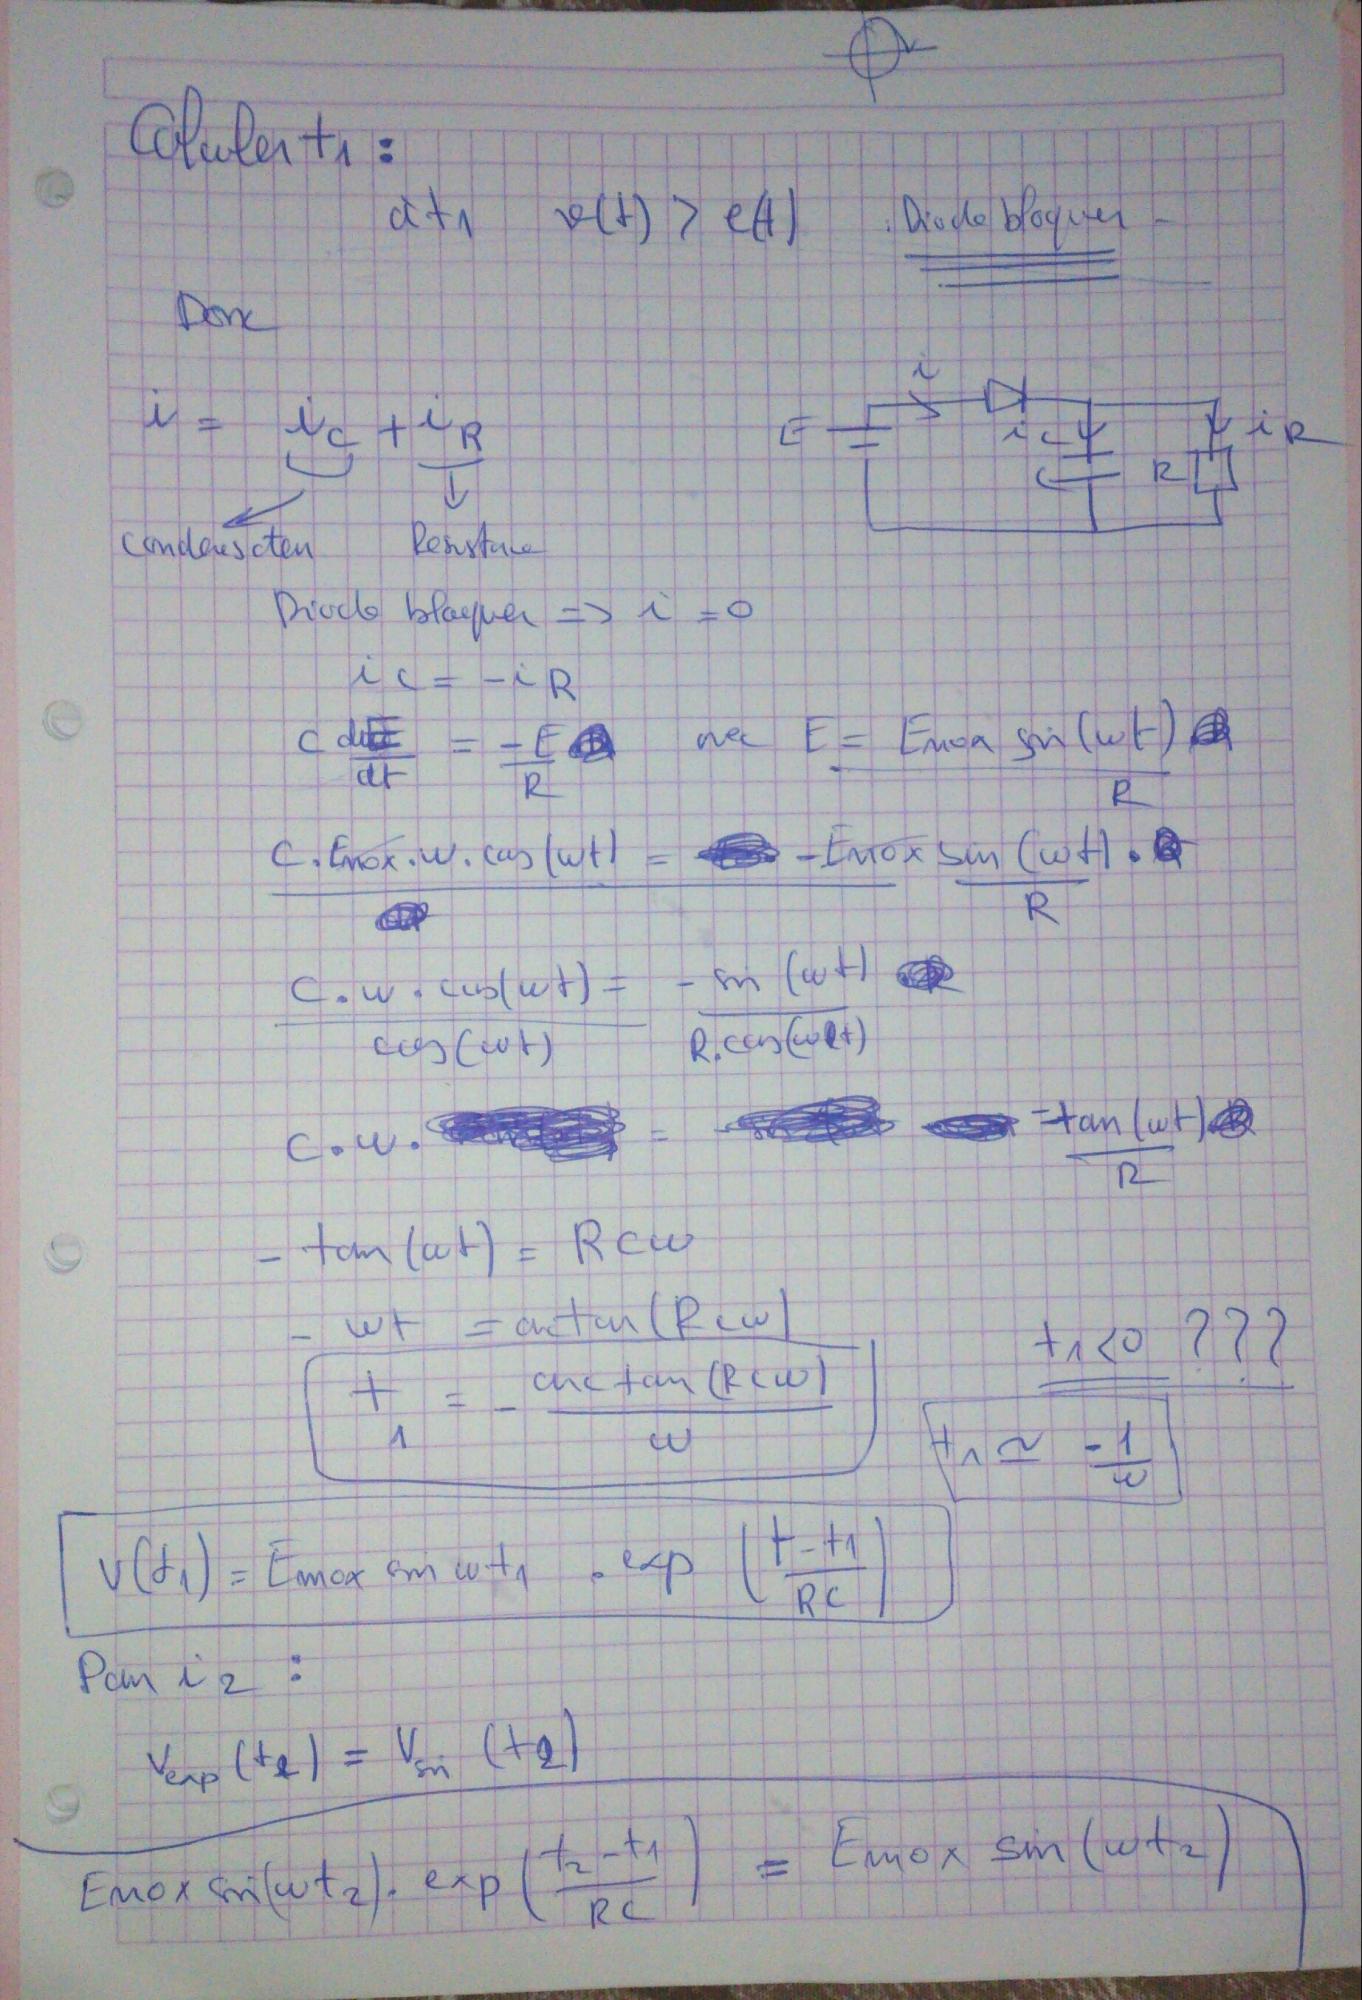 Calculer t₁ :
à t₁ v(t) > e(t) . Diode bloquer -
Donc
i = i_C + i_R
i
E
i_C
C
R
i_R
Condensateur Resistance
Diode bloquer => i = 0
i_C = - i_R
C dE/dt = - E/R avec E = Emax sin(wt) / R
C . Emax . w . cos(wt) = - Emax sin(wt) . / R
C . w . cos(wt) / cos(wt) = - sin(wt) / R.cos(wt)
C . w . = - tan(wt) / R
- tan(wt) = RCw
- wt = arctan(RCw)
t₁ = - arctan(RCw) / w
t₁ < 0 ???
t₁ ≃ - 1/w
v(t₁) = Emax sin wt₁ . exp ( t - t₁ / RC )
Pour i₂ :
V_exp (t₂) = V_sin (t₂)
Emax sin(wt₂) . exp ( t₂ - t₁ / RC ) = Emax sin(wt₂)